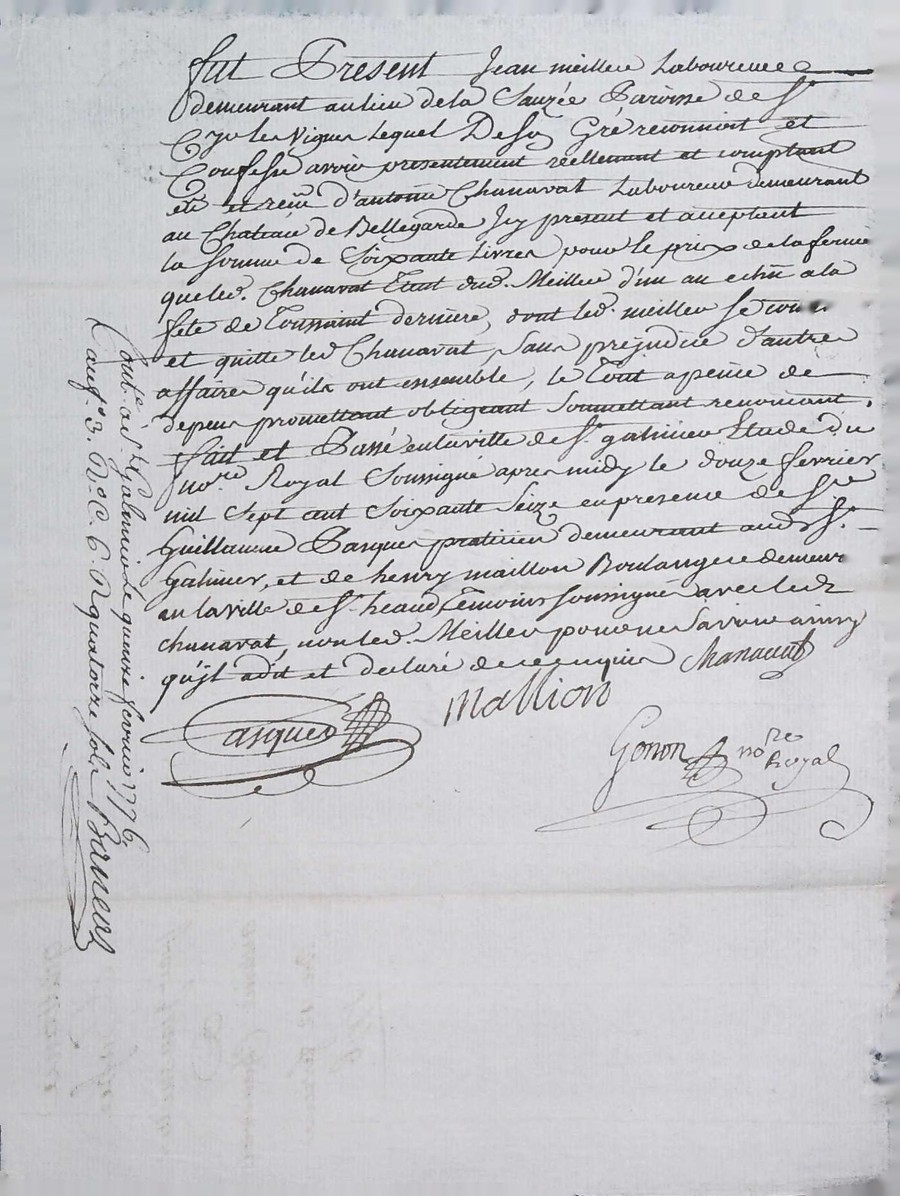 fut Present Jean meillier Laboureur
demeurant au lieu de la Sauzée Paroisse de St
Cyr les Vignes Lequel De son Gré reconnoit et
Confesse avoir presentement reellement et comptant
eû et reçu d'antoine Chanavat Laboureur demeurant
au Chateau de Bellegarde Icy present et acceptant
la somme de Soixante Livres pour le prix de la ferme
que led. Chanavat tient dud. Meillier d'un an echu a la
fete de Toussaint derniere, dont led. meillier se
et quitte led Chanavat, sans prejudice d'autres
affaires qu'ils ont ensemble, le Tout a peine de
depens promettant obligeant soumettant renoncant,
fait et Passé en la ville de St galmier Etude du
nore Royal Soussigné apres midy le douze fevrier
mil Sept cent Soixante Seize en presence de Sre
Guillaume Pasquer praticien demeurant aud St
Galmier, et de henry maillon Boulanger demeurt
en la ville de St heand Temoins soussignés avec led
chanavat, non led. Meillier pour ne savoir ainsy
qu'jl a dit et declaré de ce enquis Chanavat
Pasquer Mallion
Gonon nore
Royal
Contlé a St Galmier le quinze fevrier 1776.
quatorze sols Barrieus